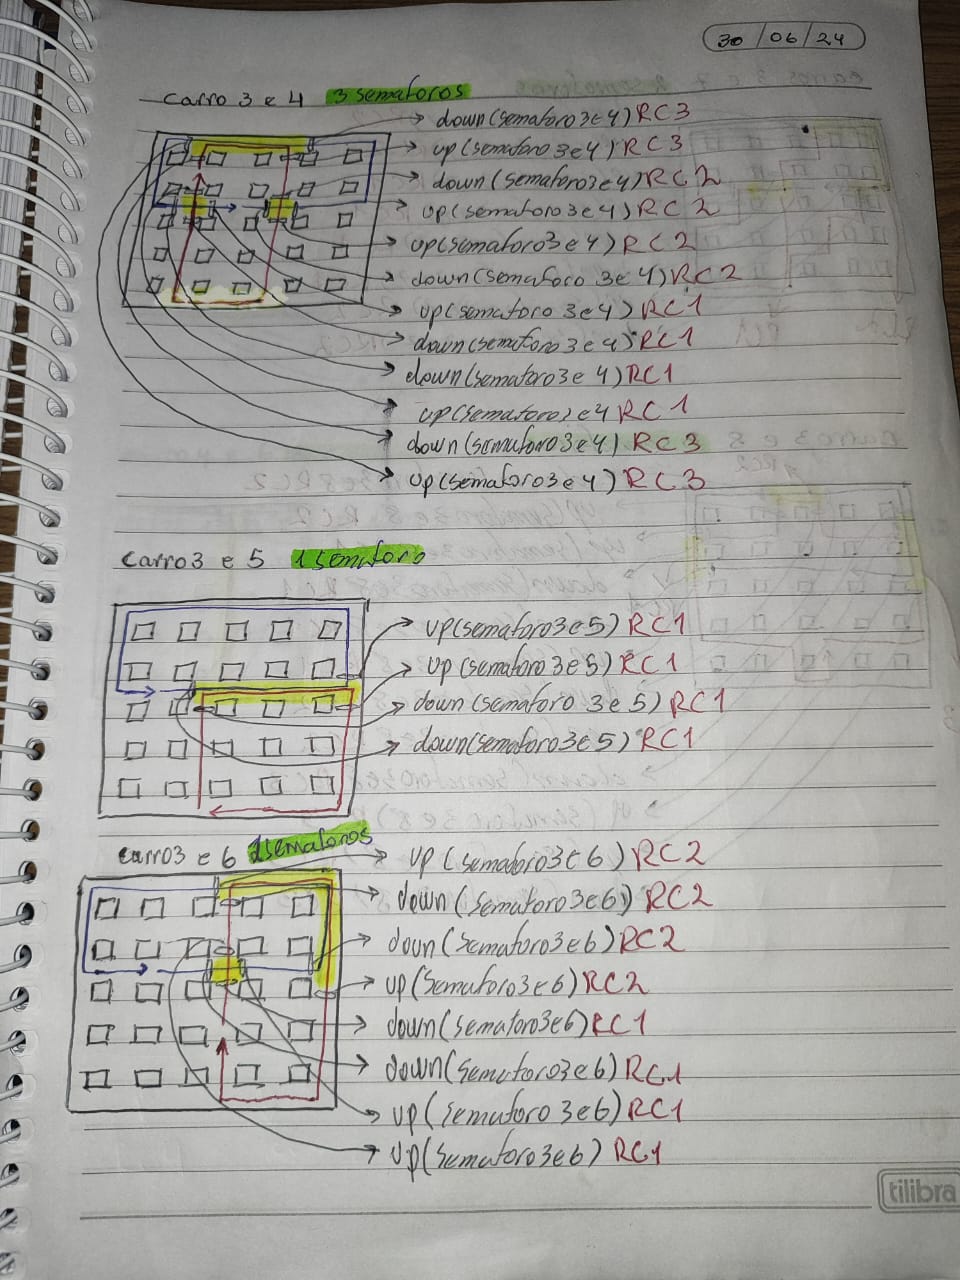 30/06/24
carro 3 e 4 3 semaforos
down(semaforo3e4) RC3
up(semaforo 3e4) RC3
down(semaforo3e4) RC2
up(semaforo3e4) RC2
up(semaforo3e4) RC2
down(semaforo 3e4) RC2
up(semaforo 3e4) RC1
down(semaforo 3e4) RC1
down(semaforo3e4) RC1
up(semaforo3e4 RC1
down(semaforo3e4) RC3
up(semaforo3e4) RC3
carro3 e 5 1 semaforo
up(semaforo3e5) RC1
up(semaforo3e5) RC1
down(semaforo 3e5) RC1
down(semaforo3e5) RC1
carro3 e 6 2semaforos
up(semaforo3e6) RC2
down(semaforo3e6) RC2
down(semaforo3e6) RC2
up(semaforo3e6) RC2
down(semaforo3e6) RC1
down(semaforo3e6) RC1
up(semaforo3e6) RC1
up(semaforo3e6) RC1
tilibra